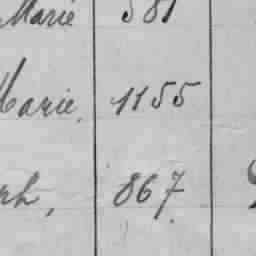 Marie 581
Marie, 1155
867